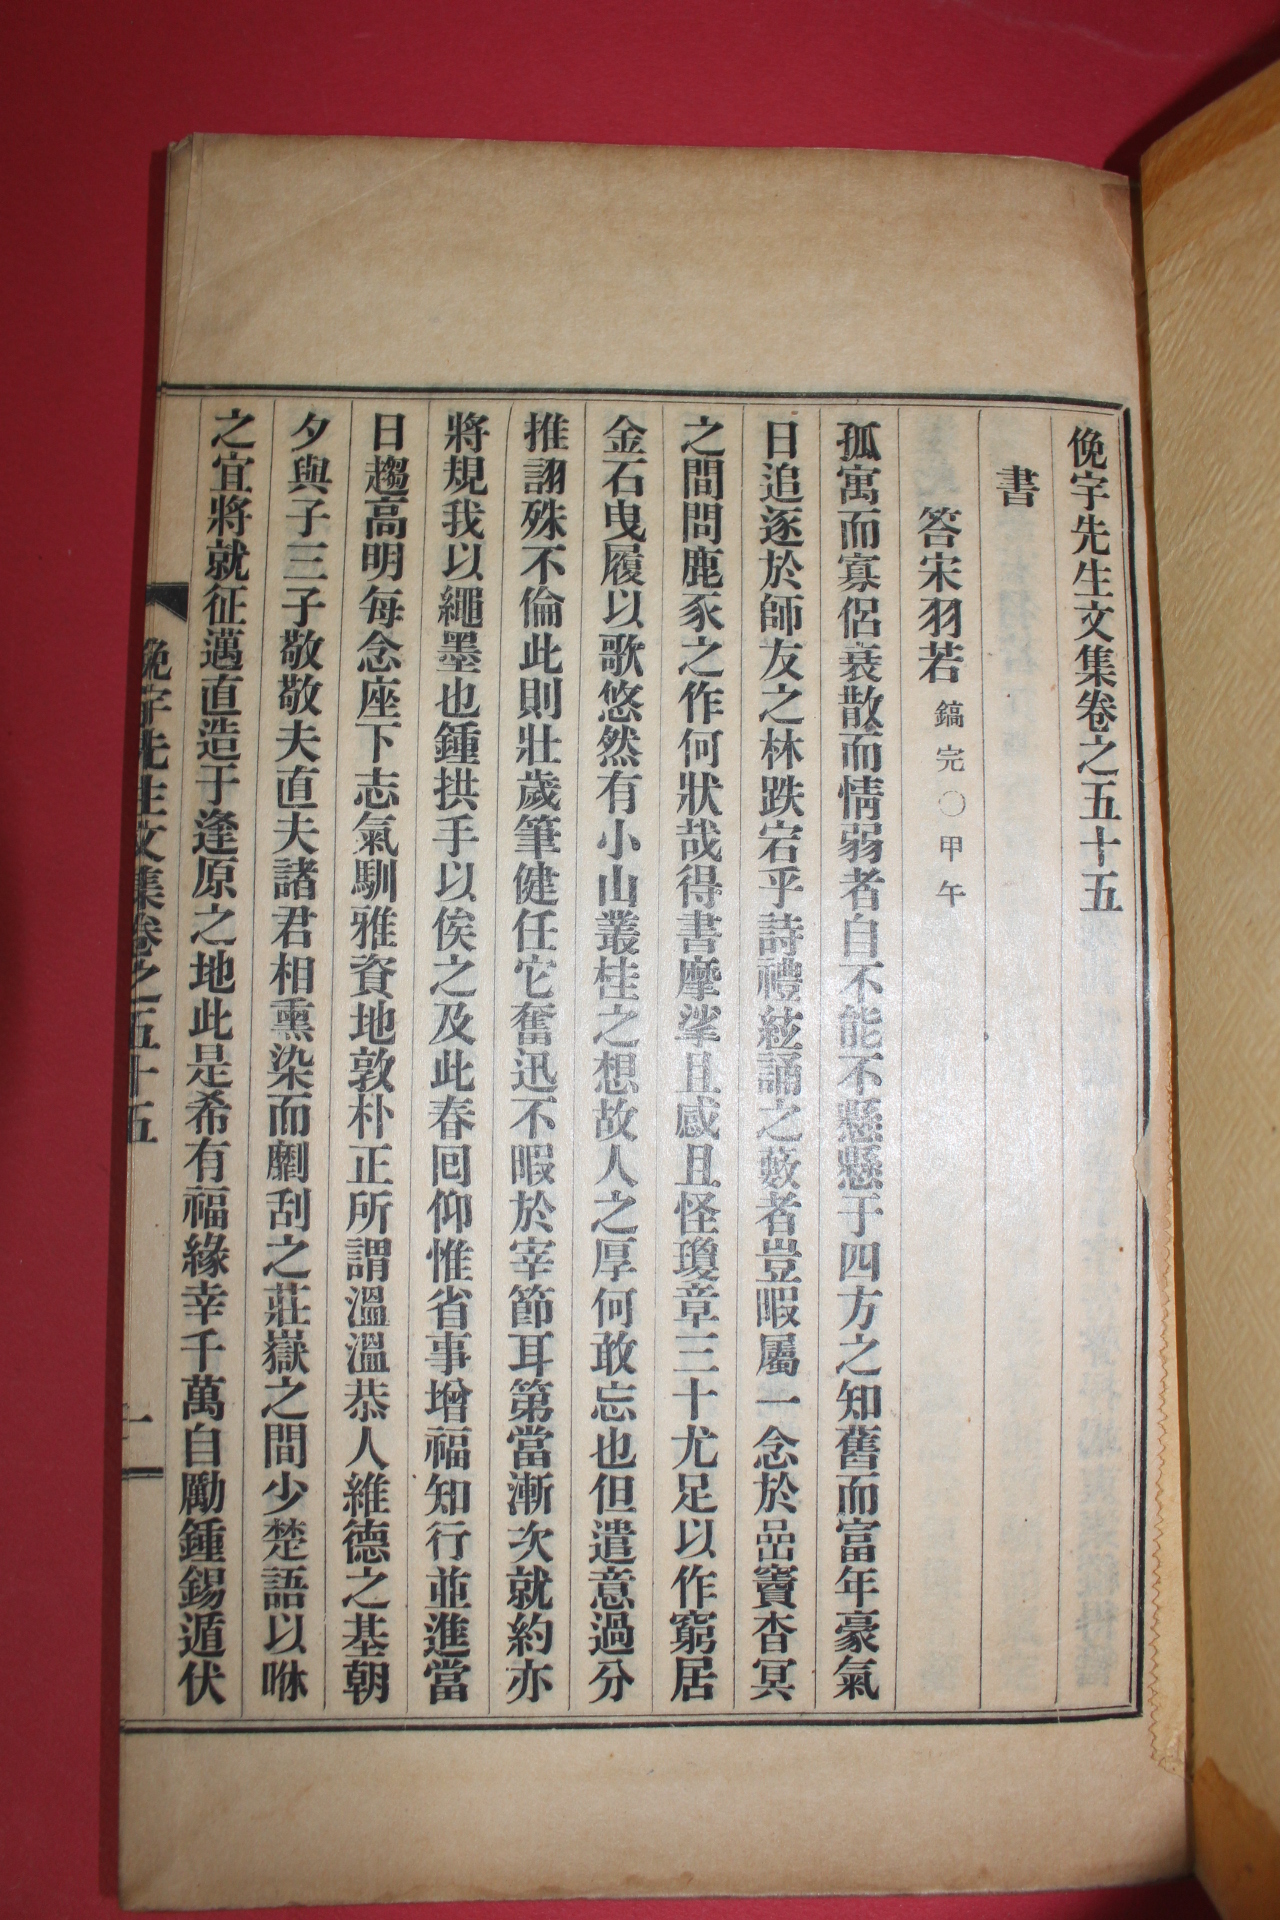 俛宇先生文集卷之五十五
書
答宋羽若鎬完○甲午
孤寓而寡侶衰散而情弱者自不能不懸懸于四方之知舊而富年豪氣
日追逐於師友之林跌宕乎詩禮絃誦之藪者豈暇屬一念於嵒竇杳冥
之間問鹿豕之作何狀哉得書摩挲且感且怪瓊章三十尤足以作窮居
金石曳履以歌悠然有小山叢桂之想故人之厚何敢忘也但遣意過分
推詡殊不倫此則壯歲筆健任它奮迅不暇於宰節耳第當漸次就約亦
將規我以繩墨也鍾拱手以俟之及此春回仰惟省事增福知行並進當
日趨高明每念座下志氣馴雅資地敦朴正所謂溫溫恭人維德之基朝
夕與子三子敬敬夫直夫諸君相熏染而劘刮之莊嶽之間少楚語以咻
之宜將就征邁直造于逢原之地此是希有福緣幸千萬自勵鍾錫遁伏
俛宇先生文集卷之五十五
一